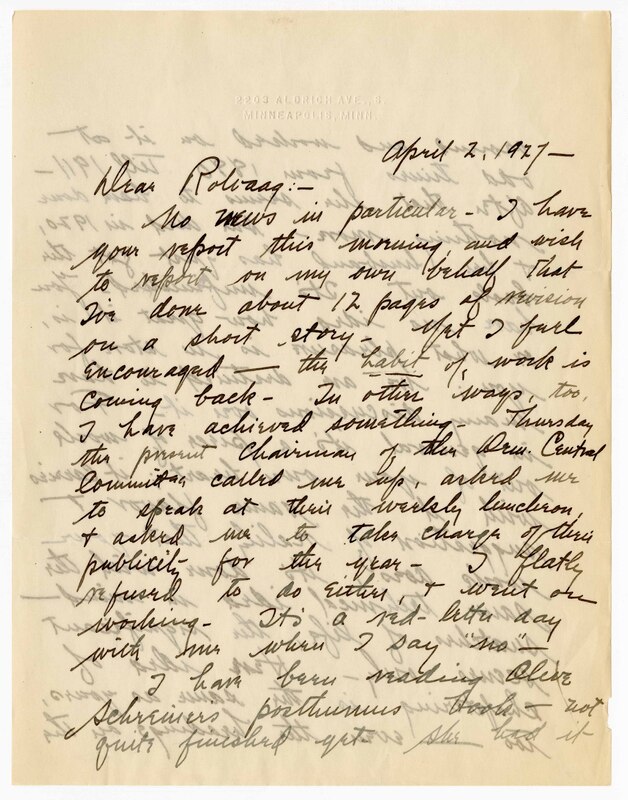 2203 ALDRICH AVE., S.
MINNEAPOLIS, MINN.
April 2, 1927—
Dear Rolvaag:—
No news in particular— I have
your report this morning, and wish
to report on my own behalf that
I've done about 12 pages of revision
on a short story— Yet I feel
encouraged — the habit of work is
coming back— In other ways, too,
I have achieved something— Thursday
the present Chairman of the Dem. Central
Committee called me up, asked me
to speak at their weekly luncheon,
& asked me to take charge of their
publicity for the year— I flatly
refused to do either, & went on
working— It's a red-letter day
with me when I say "no"—
I have been reading Olive
Schreiner's posthumus book— not
quite finished yet— She had it